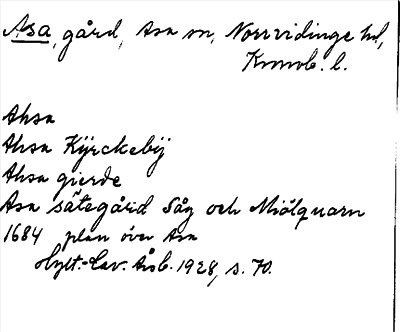 Asa, gård, Asa sn, Norrvidinge hd,
Kronob. l.
Ahsa
Ahsa Kÿrckebÿ
Ahsa gierde
Asa sätegård Såg och Miölquarn
1684 plan över Asa
Hylt.-Cav. Årsb. 1928, s. 70.